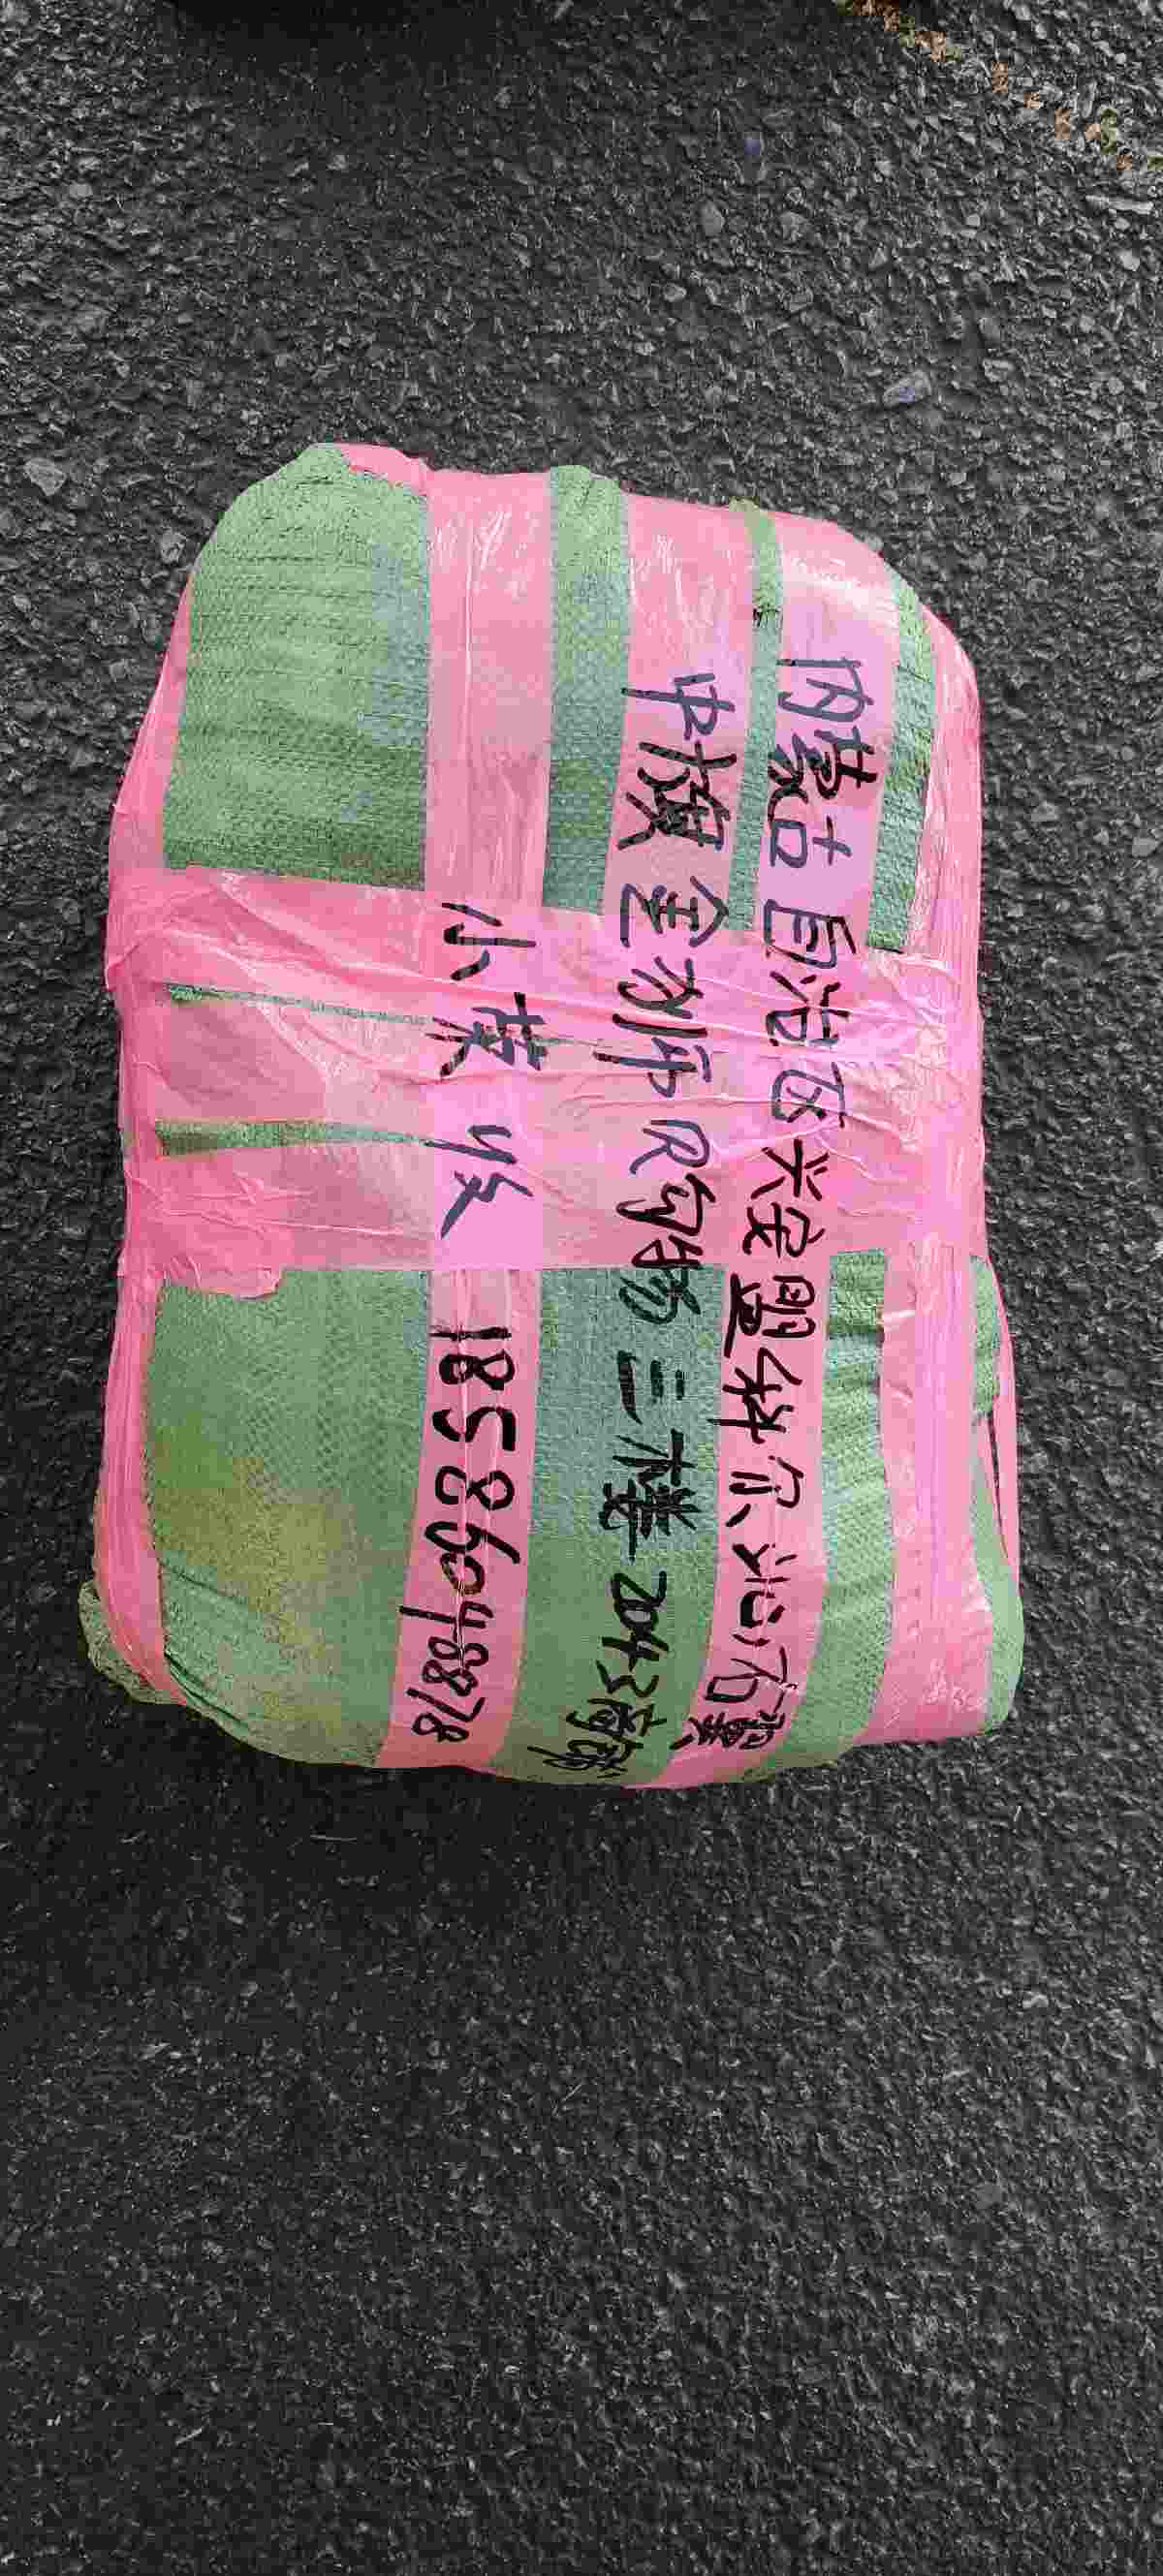 内蒙古自治区兴安盟科尔沁右翼
中旗金尔沛R购物三楼2043商铺
小英收 18586048878